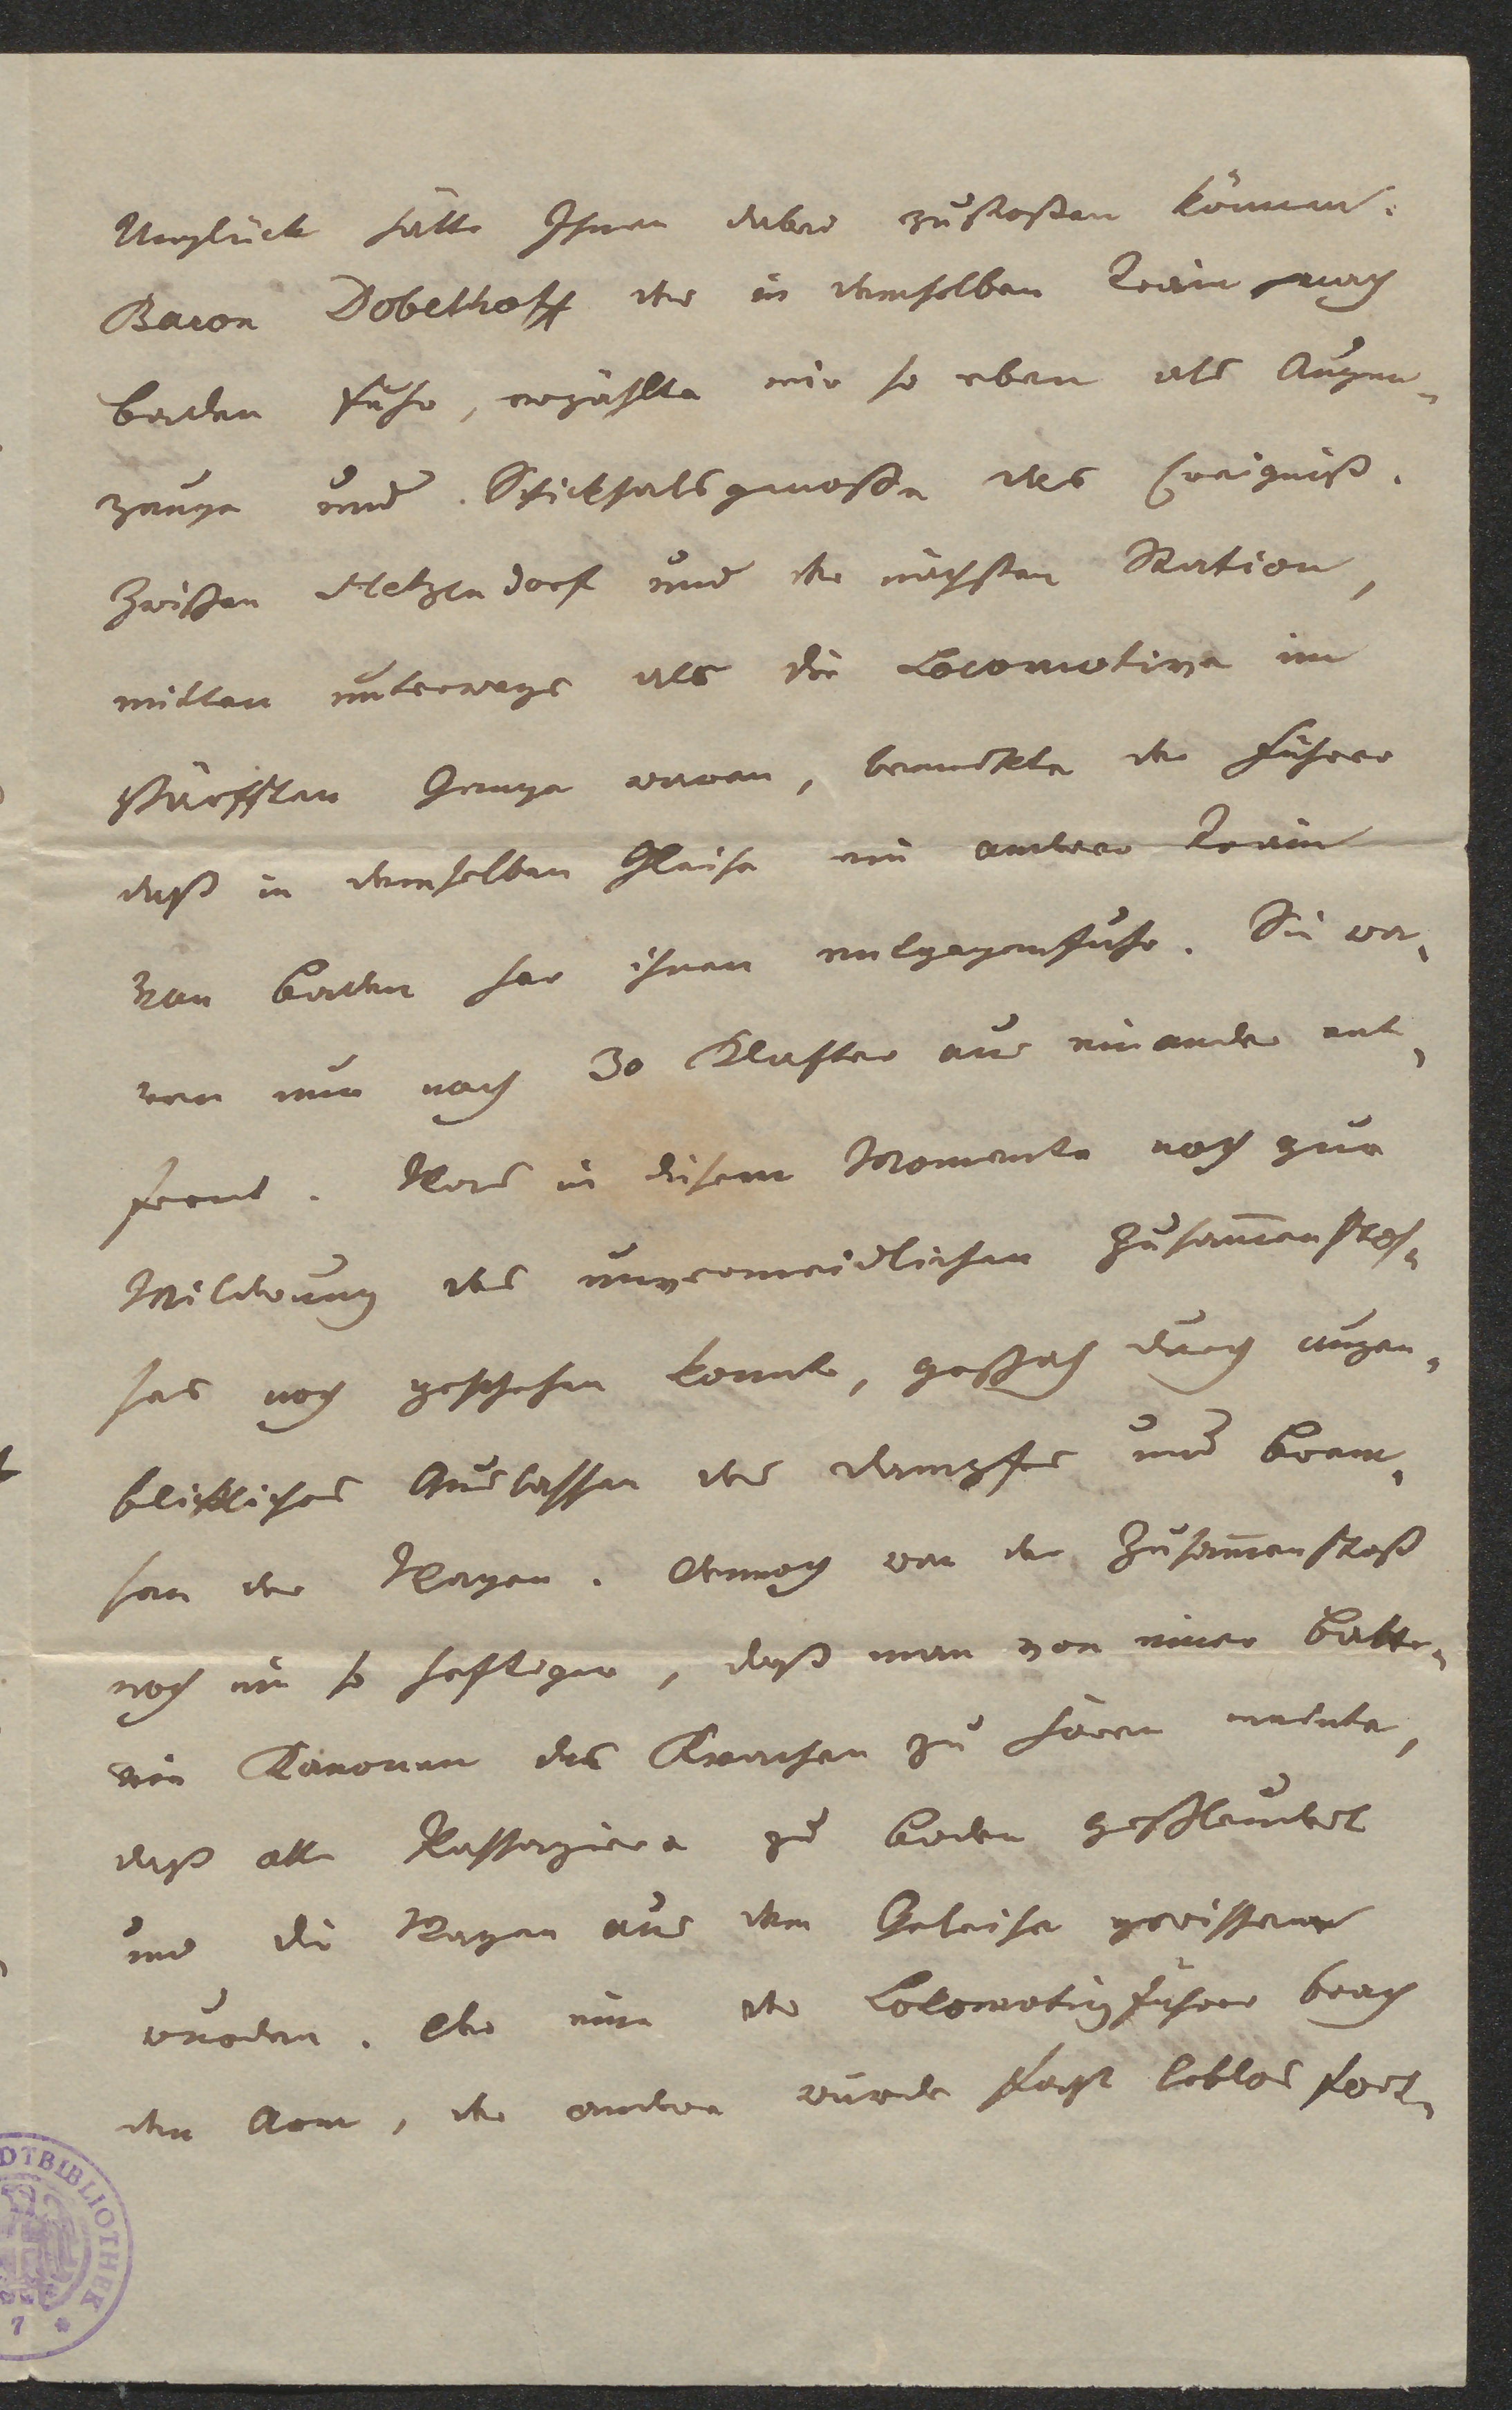 Unglück hätte Ihnen dabei zustoßen können.
Baron Doblhoff der in demselben Train nach
Baden fuhr, erzählte mir so eben als Augen-
zeuge und Schicksalsgenosse das Ereigniß.
Zwischen Hetzendorf und der nächsten Station,
mitten unterwegs als die Locomotive im
schärfsten Gange waren, bemerkte der Führer
daß in demselben Gleise ein anderer Train
von Baden her ihnen entgegenfuhr. Sie wa-
ren nur noch 30 Klafter aus einander ent-
fernt. Was in diesem Momente noch zur
Milderung des unvermeidlichen Zusam̄ensto-
ßes noch geschehen konnte, geschah durch augen-
blickliches Auslassen des Dampfes und Brem-
sen der Wagen. Dennoch war der Zusam̄enstoß
noch ein so heftiger, daß man von einer Batte-
rie Kanonen das Krachen zu hören meinte,
daß alle Passagiere zu Boden geschleudert
und die Wagen aus dem Geleise gerissen
wurden. Der eine der Locomotivführer brach
den Arm, der andere wurde fast leblos fort-
DTBIBLIOTHEK
7